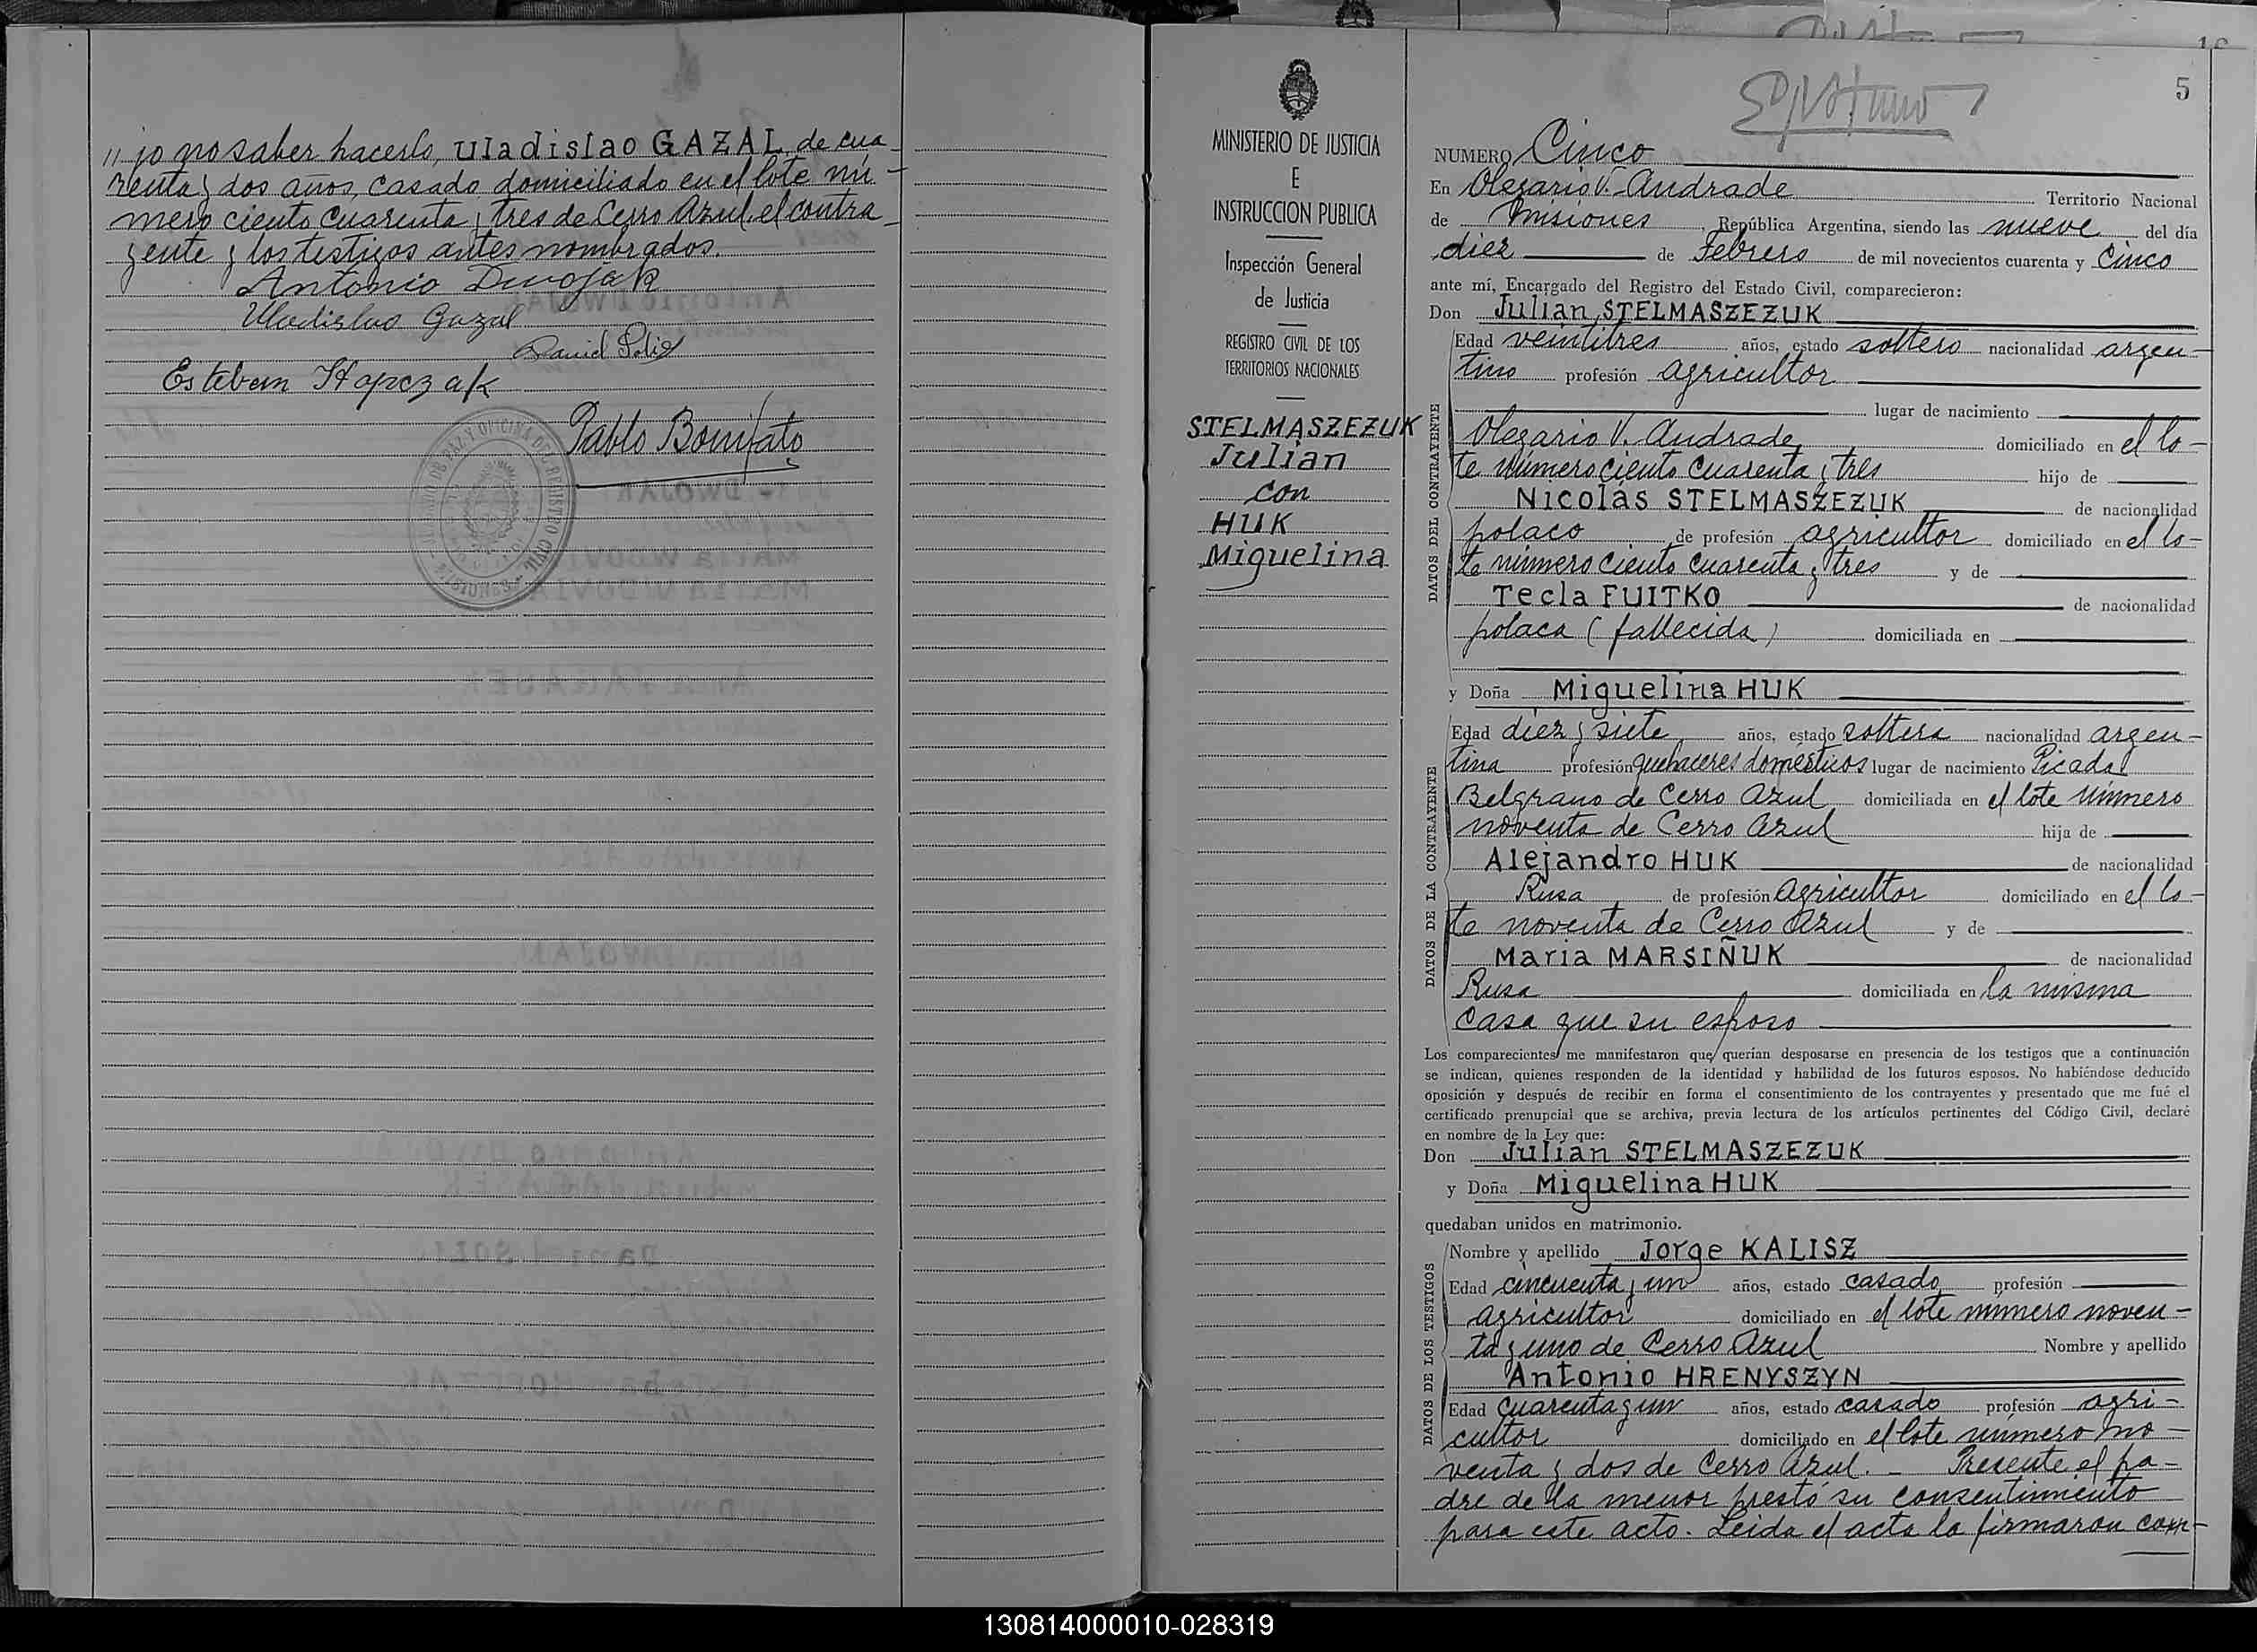 "jo no saber hacerlo, Uladislao GAZAL, de cua-
renta y dos años, casado, domiciliado en el lote nú-
mero ciento cuarenta y tres de Cerro Azul, el contra-
yente y los testigos antes nombrados.
Antonio Dwojak
Uladislao Gazal
David Solis
Esteban Hapczak
Pablo Bonifato
MINISTERIO DE JUSTICIA
E
INSTRUCCION PUBLICA
Inspección General
de Justicia
REGISTRO CIVIL DE LOS
TERRITORIOS NACIONALES
STELMASZEZUK
Julian
con
HUK
Miguelina
5
NUMERO Cinco
En Olegario V. Andrade Territorio Nacional
de Misiones, República Argentina, siendo las nueve del día
diez de Febrero de mil novecientos cuarenta y Cinco
ante mí, Encargado del Registro del Estado Civil, comparecieron:
Don Julian STELMASZEZUK
DATOS DEL CONTRAYENTE
Edad veintitres años, estado soltero nacionalidad argen-
tino profesión agricultor
lugar de nacimiento
Olegario V. Andrade domiciliado en el lo-
te número ciento cuarenta y tres hijo de
Nicolás STELMASZEZUK de nacionalidad
polaco de profesión agricultor domiciliado en el lo-
te número ciento cuarenta y tres y de
Tecla FUITKO de nacionalidad
polaca (fallecida) domiciliada en
y Doña Miguelina HUK
DATOS DE LA CONTRAYENTE
Edad diez y siete años, estado soltera nacionalidad argen-
tina profesión quehaceres domésticos lugar de nacimiento Picada
Belgrano de Cerro Azul domiciliada en el lote número
noventa de Cerro Azul hija de
Alejandro HUK de nacionalidad
Rusa de profesión agricultor domiciliado en el lo-
te noventa de Cerro Azul y de
Maria MARSIÑUK de nacionalidad
Rusa domiciliada en la misma
casa que su esposo
Los comparecientes me manifestaron que querían desposarse en presencia de los testigos que a continuación
se indican, quienes responden de la identidad y habilidad de los futuros esposos. No habiéndose deducido
oposición y después de recibir en forma el consentimiento de los contrayentes y presentado que me fué el
certificado prenupcial que se archiva, previa lectura de los artículos pertinentes del Código Civil, declaré
en nombre de la Ley que:
Don Julian STELMASZEZUK
y Doña Miguelina HUK
quedaban unidos en matrimonio.
DATOS DE LOS TESTIGOS
Nombre y apellido Jorge KALISZ
Edad cincuenta y un años, estado casado profesión
agricultor domiciliado en el lote número noven-
ta y uno de Cerro Azul Nombre y apellido
Antonio HRENYSZYN
Edad cuarenta y un años, estado casado profesión agri-
cultor domiciliado en el lote número no-
venta y dos de Cerro Azul. - Presente el pa-
dre de la menor prestó su consentimiento
para este acto. Leida el acta la firmaron con-
130814000010-028319